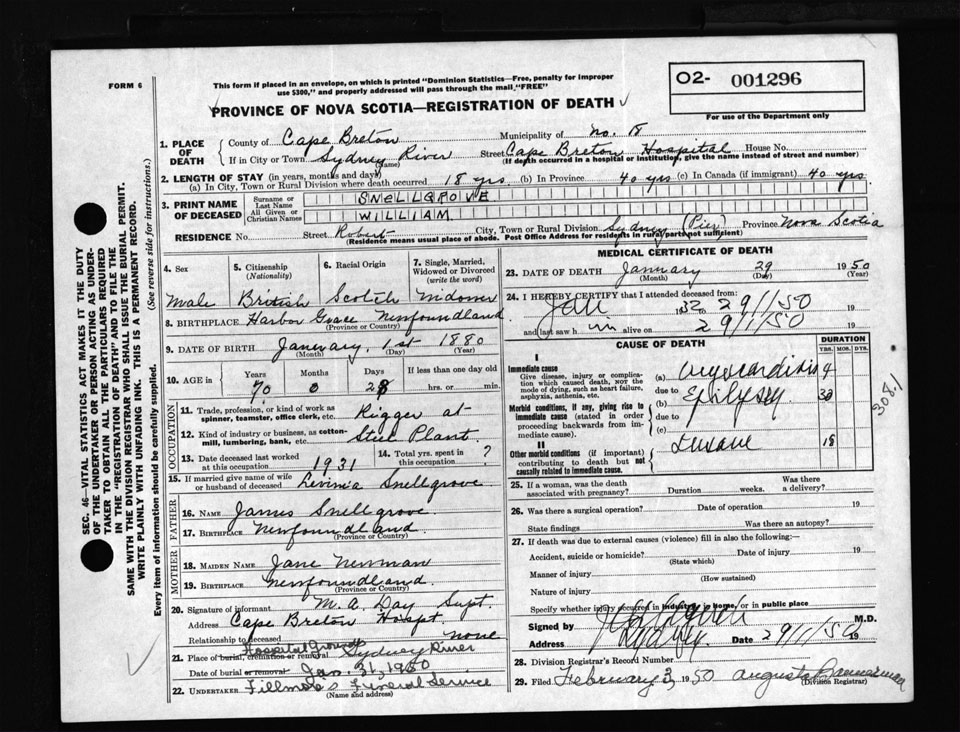 FORM 6
This form if placed in an envelope, on which is printed "Dominion Statistics—Free, penalty for improper
use $300," and properly addressed will pass through the mail "FREE"
PROVINCE OF NOVA SCOTIA—REGISTRATION OF DEATH
O2- 001296
For use of the Department only
SEC. 46—VITAL STATISTICS ACT MAKES IT THE DUTY
OF THE UNDERTAKER OR PERSON ACTING AS UNDER-
TAKER TO OBTAIN ALL THE PARTICULARS REQUIRED
IN THE "REGISTRATION OF DEATH" AND TO FILE THE
SAME WITH THE DIVISION REGISTRAR WHO SHALL ISSUE THE BURIAL PERMIT.
WRITE PLAINLY WITH UNFADING INK. THIS IS A PERMANENT RECORD.
Every item of information should be carefully supplied. (See reverse side for instructions.)
1. PLACE OF DEATH
County of Cape Breton Municipality of No. 18
If in City or Town Sydney River Street Cape Breton Hospital House No.
(Name) (If death occurred in a hospital or institution, give the name instead of street and number)
2. LENGTH OF STAY (in years, months and days)
(a) In City, Town or Rural Division where death occurred 18 yrs. (b) In Province 40 yrs (c) In Canada (if immigrant) 40 yrs.
3. PRINT NAME OF DECEASED
Surname or Last Name SNELLGROVE
All Given or Christian Names WILLIAM
RESIDENCE No. Street Robert City, Town or Rural Division Sydney (Pier) Province Nova Scotia
(Residence means usual place of abode. Post Office Address for residents in rural parts not sufficient)
4. Sex 5. Citizenship (Nationality) 6. Racial Origin 7. Single, Married, Widowed or Divorced (write the word)
Male British Scotch Widower
8. BIRTHPLACE Harbor Grace Newfoundland
(Province or Country)
9. DATE OF BIRTH January 1st 1880
(Month) (Day) (Year)
10. AGE in Years Months Days If less than one day old
70 0 28 hrs. or min.
OCCUPATION
11. Trade, profession, or kind of work as spinner, teamster, office clerk, etc. Rigger at
12. Kind of industry or business, as cotton-mill, lumbering, bank, etc. Steel Plant
13. Date deceased last worked at this occupation 1931 14. Total yrs. spent in this occupation ?
15. If married give name of wife or husband of deceased Levinia Snellgrove
FATHER
16. NAME James Snellgrove
17. BIRTHPLACE Newfoundland
(Province or Country)
MOTHER
18. MAIDEN NAME Jane Newman
19. BIRTHPLACE Newfoundland.
(Province or Country)
20. Signature of informant M. A. Day Supt.
Address Cape Breton Hospt.
Relationship to deceased none
21. Place of burial, cremation or removal Hospital Grounds Sydney River
Date of burial or removal Jan. 31, 1950
22. UNDERTAKER Fillmore's Funeral Service
(Name and address)
MEDICAL CERTIFICATE OF DEATH
23. DATE OF DEATH January 29 1950
(Month) (Day) (Year)
24. I HEREBY CERTIFY that I attended deceased from:
Jan 1932 29/1/50 19
and last saw h im alive on 29/1/50 19
CAUSE OF DEATH
DURATION
YRS. MOS. DYS.
I
Immediate cause
Give disease, injury or complication which caused death, NOT the mode of dying, such as heart failure, asphyxia, asthenia, etc.
(a) Myocarditis 4
due to
Morbid conditions, if any, giving rise to immediate cause (stated in order proceeding backwards from immediate cause).
(b) Epilepsy
due to
(c)
II
Other morbid conditions (if important) contributing to death but not causally related to immediate cause.
Insane 18
308.1
25. If a woman, was the death associated with pregnancy? Duration weeks. Was there a delivery?
26. Was there a surgical operation? Date of operation 19
State findings Was there an autopsy?
27. If death was due to external causes (violence) fill in also the following:
Accident, suicide or homicide? Date of injury 19
(State which)
Manner of injury
(How sustained)
Nature of injury
Specify whether injury occurred in industry, in home, or in public place
Signed by M.D.
Address Sydney. Date 29/1/50 19
28. Division Registrar's Record Number
29. Filed February 3, 1950 Augusta Bannerman
(Division Registrar)